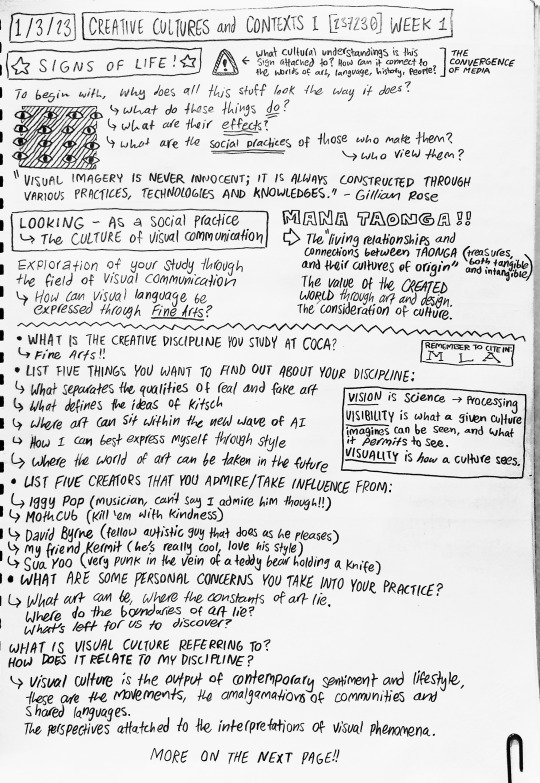 1/3/23 CREATIVE CULTURES and CONTEXTS I [237230] WEEK 1
SIGNS OF LIFE!
What cultural understandings is this
sign attached to? How can it connect to
the worlds of art, language, history, people?
THE
CONVERGENCE
OF MEDIA
To begin with, why does all this stuff look the way it does?
What do these things do?
What are their effects?
What are the social practices of those who make them?
Who view them?
"VISUAL IMAGERY IS NEVER INNOCENT; IT IS ALWAYS CONSTRUCTED THROUGH
VARIOUS PRACTICES, TECHNOLOGIES AND KNOWLEDGES." - Gillian Rose
LOOKING - As a social practice
The CULTURE of visual communication
Exploration of your study through
the field of visual communication
How can visual language be
expressed through Fine Arts?
MANA TAONGA!!
The "living relationships and
connections between TAONGA (treasures,
both tangible
and intangible)
and their cultures of origin"
The value of the CREATED
WORLD through art and design.
The consideration of culture.
• WHAT IS THE CREATIVE DISCIPLINE YOU STUDY AT COCA?
Fine Arts!!
REMEMBER TO CITE IN:
MLA
• LIST FIVE THINGS YOU WANT TO FIND OUT ABOUT YOUR DISCIPLINE:
What separates the qualities of real and fake art
What defines the ideas of kitsch
Where art can sit within the new wave of AI
How I can best express myself through style
Where the world of art can be taken in the future
VISION is Science → Processing
VISIBILITY is what a given culture
imagines can be seen, and what
it permits to see.
VISUALITY is how a culture sees.
• LIST FIVE CREATORS THAT YOU ADMIRE/TAKE INFLUENCE FROM:
Iggy Pop (musician, can't say I admire him though!!)
MothCub (kill 'em with kindness)
David Byrne (fellow autistic guy that does as he pleases)
my friend Kermit (he's really cool, love his style)
Sua Yoo (very punk in the vein of a teddy bear holding a knife)
• WHAT ARE SOME PERSONAL CONCERNS YOU TAKE INTO YOUR PRACTICE?
What art can be, where the constants of art lie.
Where do the boundaries of art lie?
What's left for us to discover?
WHAT IS VISUAL CULTURE REFERRING TO?
HOW DOES IT RELATE TO MY DISCIPLINE?
Visual culture is the output of contemporary sentiment and lifestyle,
these are the movements, the amalgamations of communities and
shared languages.
The perspectives attatched to the interpretations of visual phenomena.
MORE ON THE NEXT PAGE!!